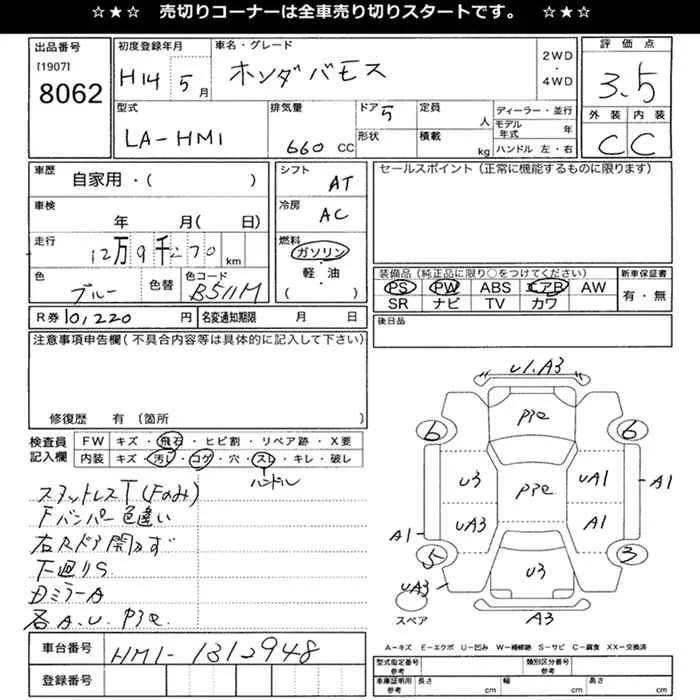 ☆★☆ 売切りコーナーは全車売り切りスタートです。 ☆★☆
出品番号
[1907]
8062
初度登録年月
H14 5月
車名・グレード
ホンダバモス
2WD
・
4WD
評価点
3.5
外装 内装
C C
型式
LA-HM1
排気量
660 CC
ドア 5
形状
定員 人
積載 kg
ディーラー・並行
モデル年式 年
ハンドル 左・右
車歴
自家用・( )
車検
年 月( 日)
走行
12万9千270 km
色
ブルー
色替
色コード
B511M
シフト
AT
冷房
AC
燃料
ガソリン
・
軽・油
( )
セールスポイント(正常に機能するものに限ります)
装備品(純正品に限り○をつけてください)
PS PW ABS エアB AW
SR ナビ TV カワ
新車保証書
有・無
R券 10,220 円
名変通知期限 月 日
後日品
注意事項申告欄(不具合内容等は具体的に記入して下さい)
修復歴 有(箇所 )
検査員記入欄
FW キズ・飛石・ヒビ割・リペア跡・X要
内装 キズ・汚レ・コゲ・穴・スレ・キレ・破レ
ハンドル
スタットレスT(Fのみ)
Fバンパー色違い
右Rドア開かず
下廻りS
DミラーA
各A.U.Pﾖe.
U1.A3
Pﾖe
6 6
U3
Pﾖe
UA1
A1
UA3
A1
A1
5 3
U3
UA3
スペア
A3
A-キズ E-エクボ U-凹み W-補修跡 S-サビ C-腐食 XX-交換済
車台番号
HM1-1312948
登録番号
型式指定番号 参考
類別区分番号 参考
車庫証明用 参考
長さ cm
幅 cm
高さ cm